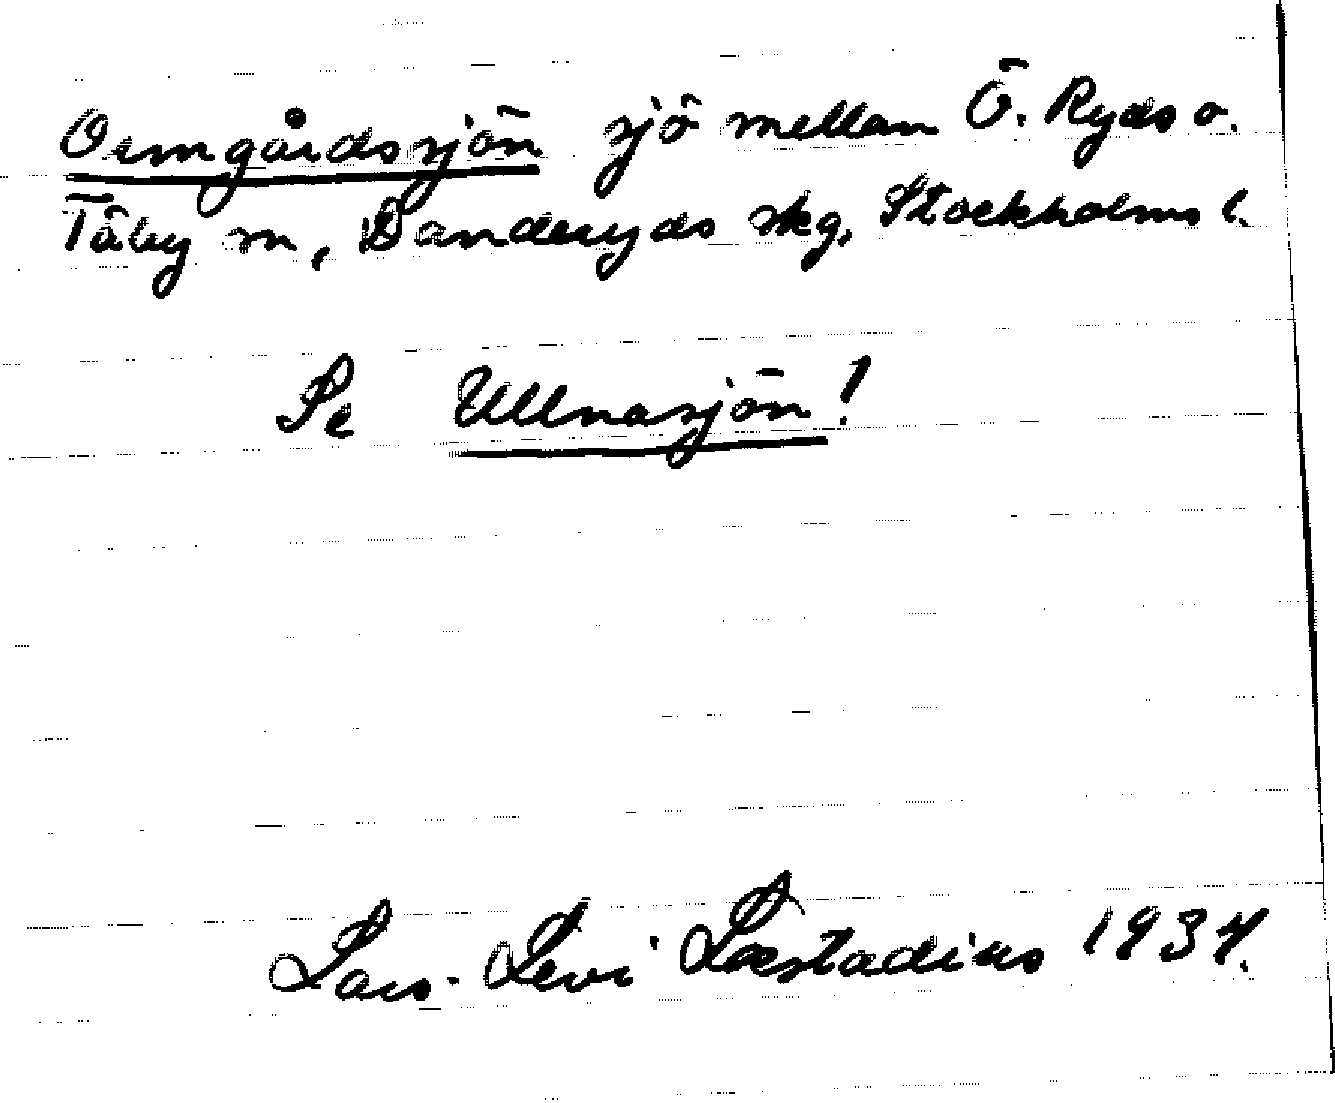 Ormgårdssjön sjö mellan Ö. Ryds o.
Täby sn, Danderyds skg, Stockholms l.
Se Ullnasjön!
Lars-Levi Læstadius 1934.